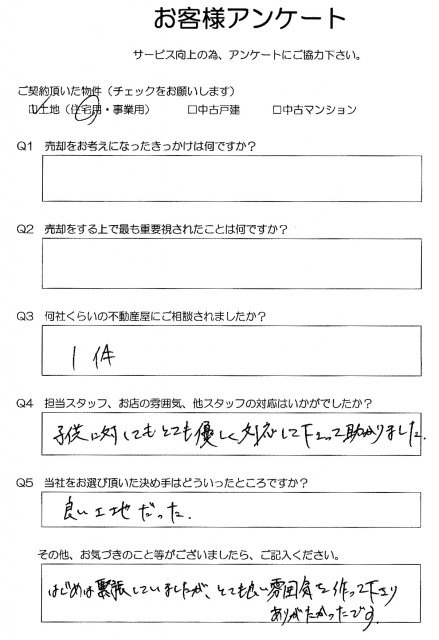 お客様アンケート
サービス向上の為、アンケートにご協力下さい。
ご契約頂いた物件（チェックをお願いします）
☑土地（住宅用・事業用）　□中古戸建　□中古マンション
Q1　売却をお考えになったきっかけは何ですか？
Q2　売却をする上で最も重要視されたことは何ですか？
Q3　何社くらいの不動産屋にご相談されましたか？
1件
Q4　担当スタッフ、お店の雰囲気、他スタッフの対応はいかがでしたか？
子供に対してもとても優しく対応して下さって助かりました。
Q5　当社をお選び頂いた決め手はどういったところですか？
良い土地だった。
その他、お気づきのこと等がございましたら、ご記入ください。
はじめは緊張していましたが、とても良い雰囲気を作って下さり
ありがたかったです。